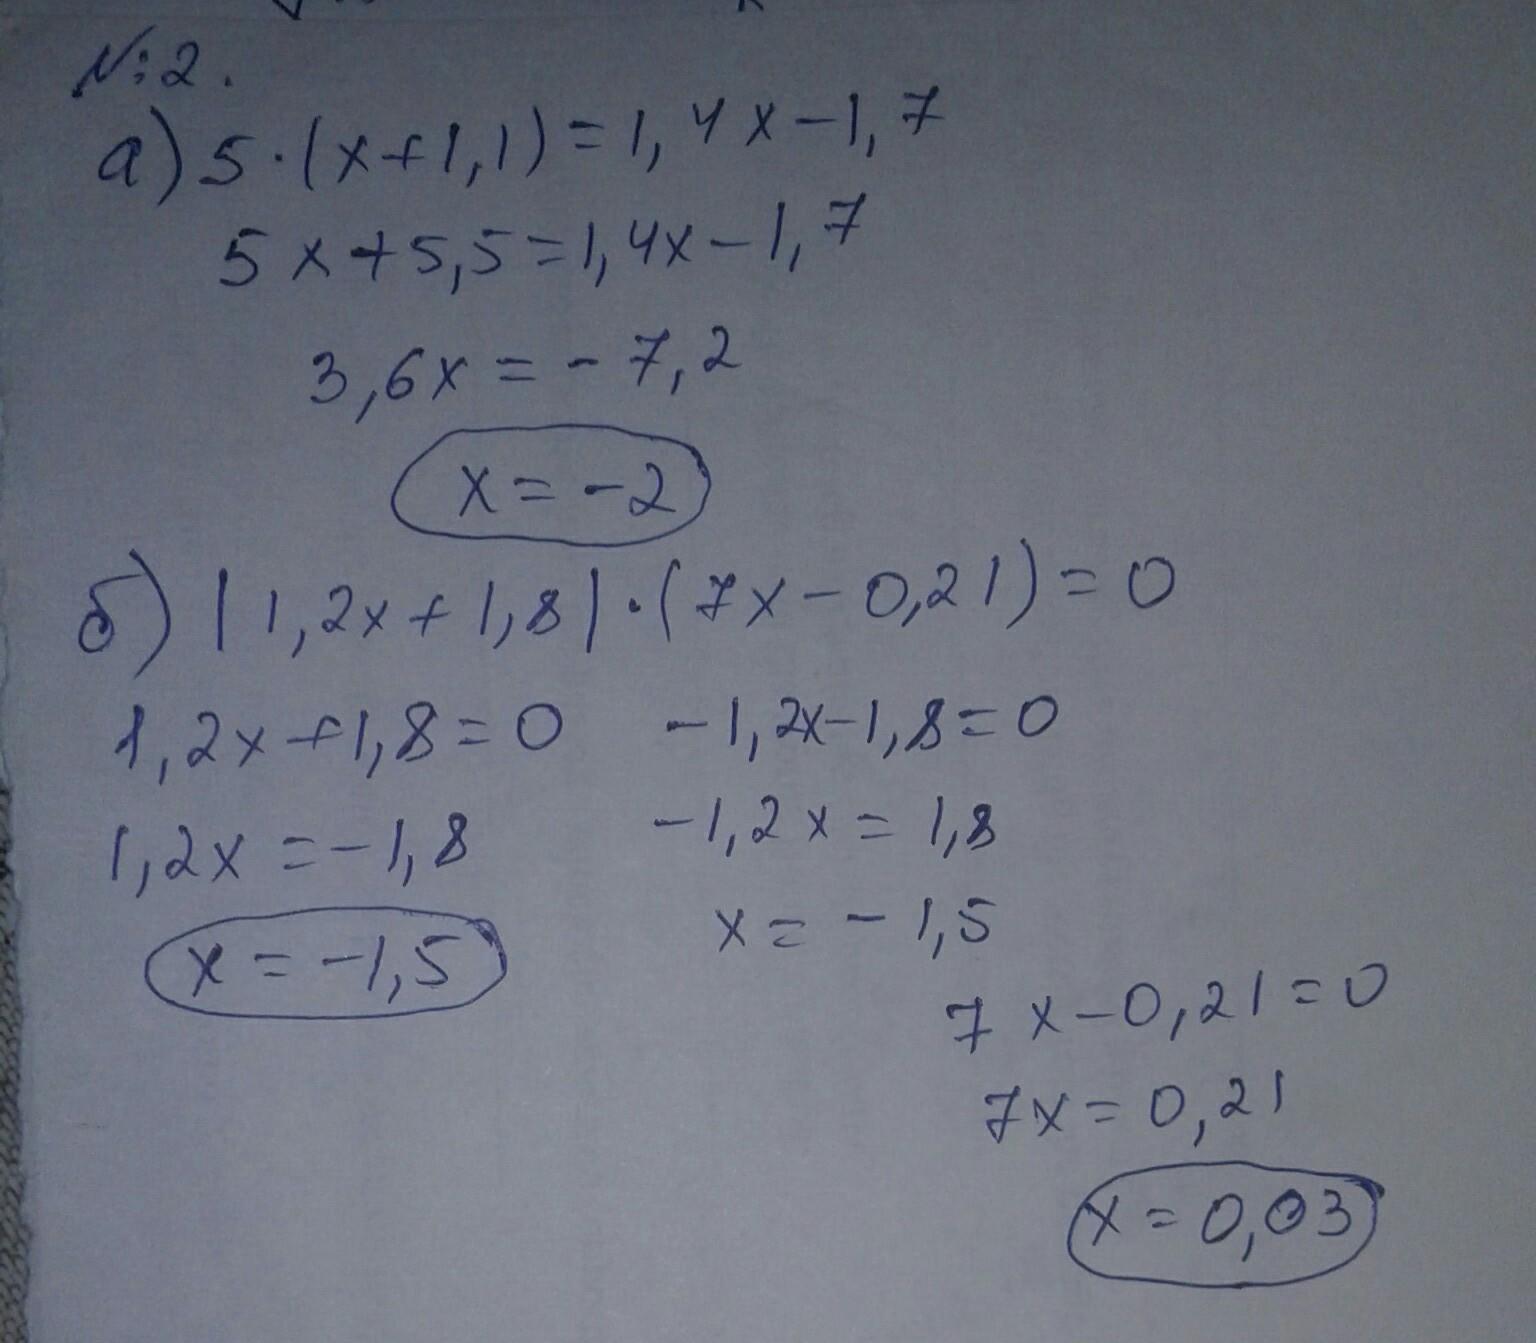 N:2.
а) 5·(x+1,1)=1,4x-1,7
5x+5,5=1,4x-1,7
3,6x=-7,2
x=-2
б) |1,2x+1,8|·(7x-0,21)=0
1,2x+1,8=0 -1,2x-1,8=0
1,2x=-1,8 -1,2x=1,8
x=-1,5 x=-1,5
7x-0,21=0
7x=0,21
x=0,03